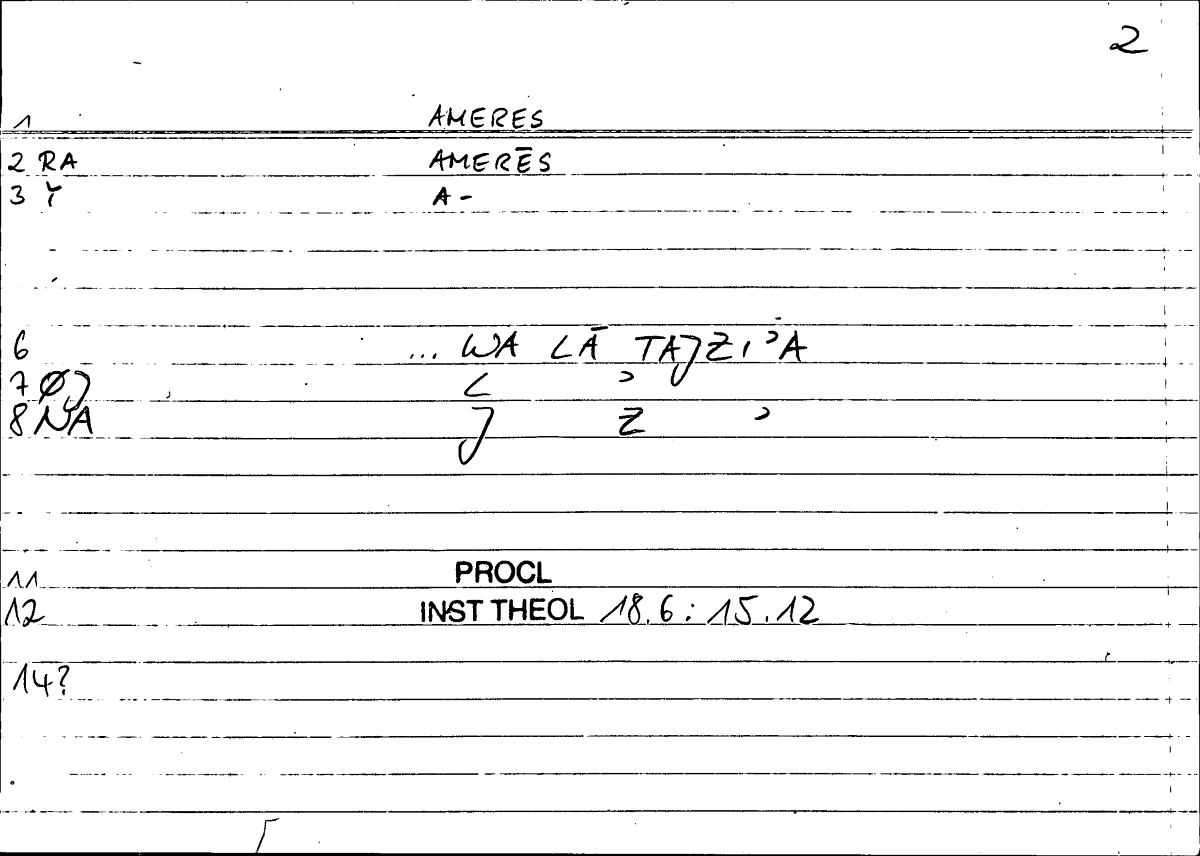 2
1 AMERES
2 RA AMERĒS
3 Y A -
6 ... WA LĀ TAJZIʾA
7 ØJ L ʾ
8 NA J Z ʾ
11 PROCL
12 INST THEOL 18.6 : 15.12
14?